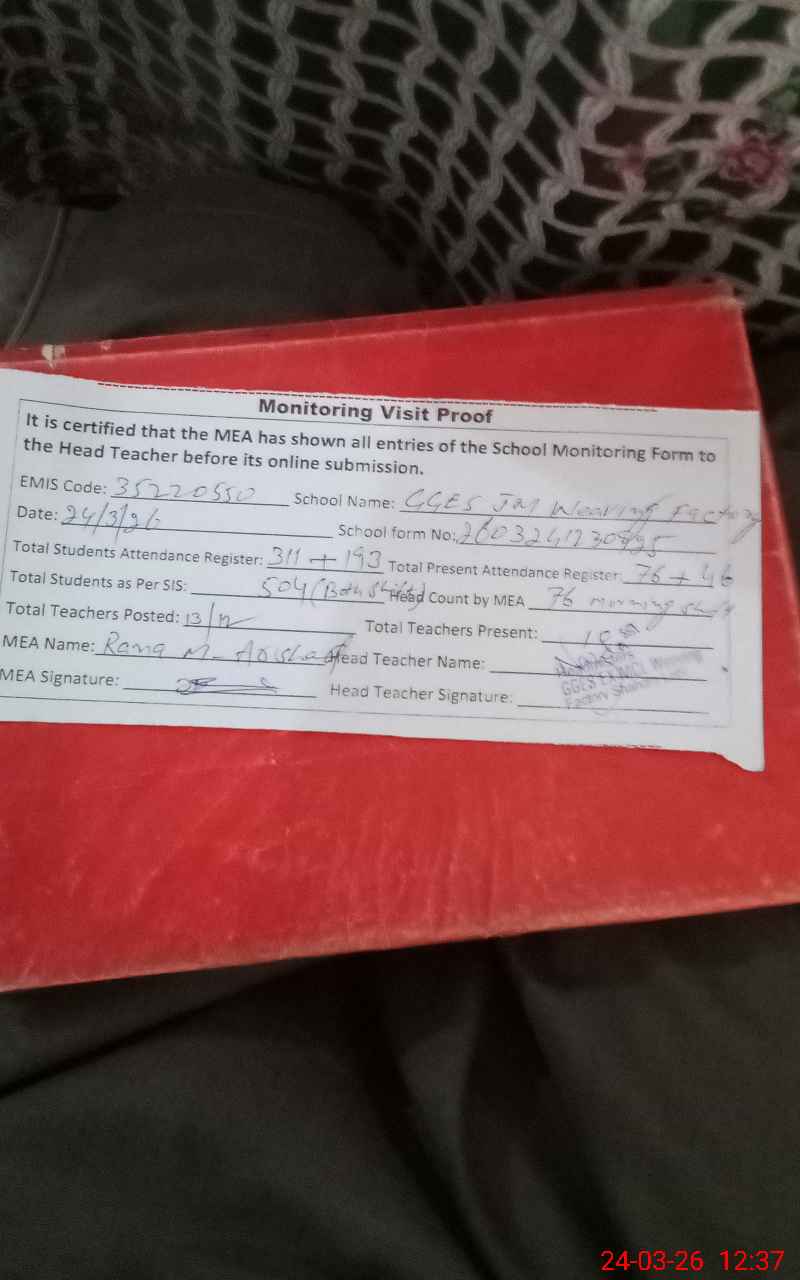 Monitoring Visit Proof
It is certified that the MEA has shown all entries of the School Monitoring Form to
the Head Teacher before its online submission.
EMIS Code: 35220550 School Name: GGES JM Weaving Factory
Date: 24/3/26 School form No:
Total Students Attendance Register: 311 + 193 Total Present Attendance Register: 76 + 46
Total Students as Per SIS: 504 (Both Shifts) Head Count by MEA 76 morning shift
Total Teachers Posted: 13/12 Total Teachers Present:
MEA Name: Rana M. Head Teacher Name:
MEA Signature: Head Teacher Signature:
GGES Weaving
Factory
24-03-26 12:37